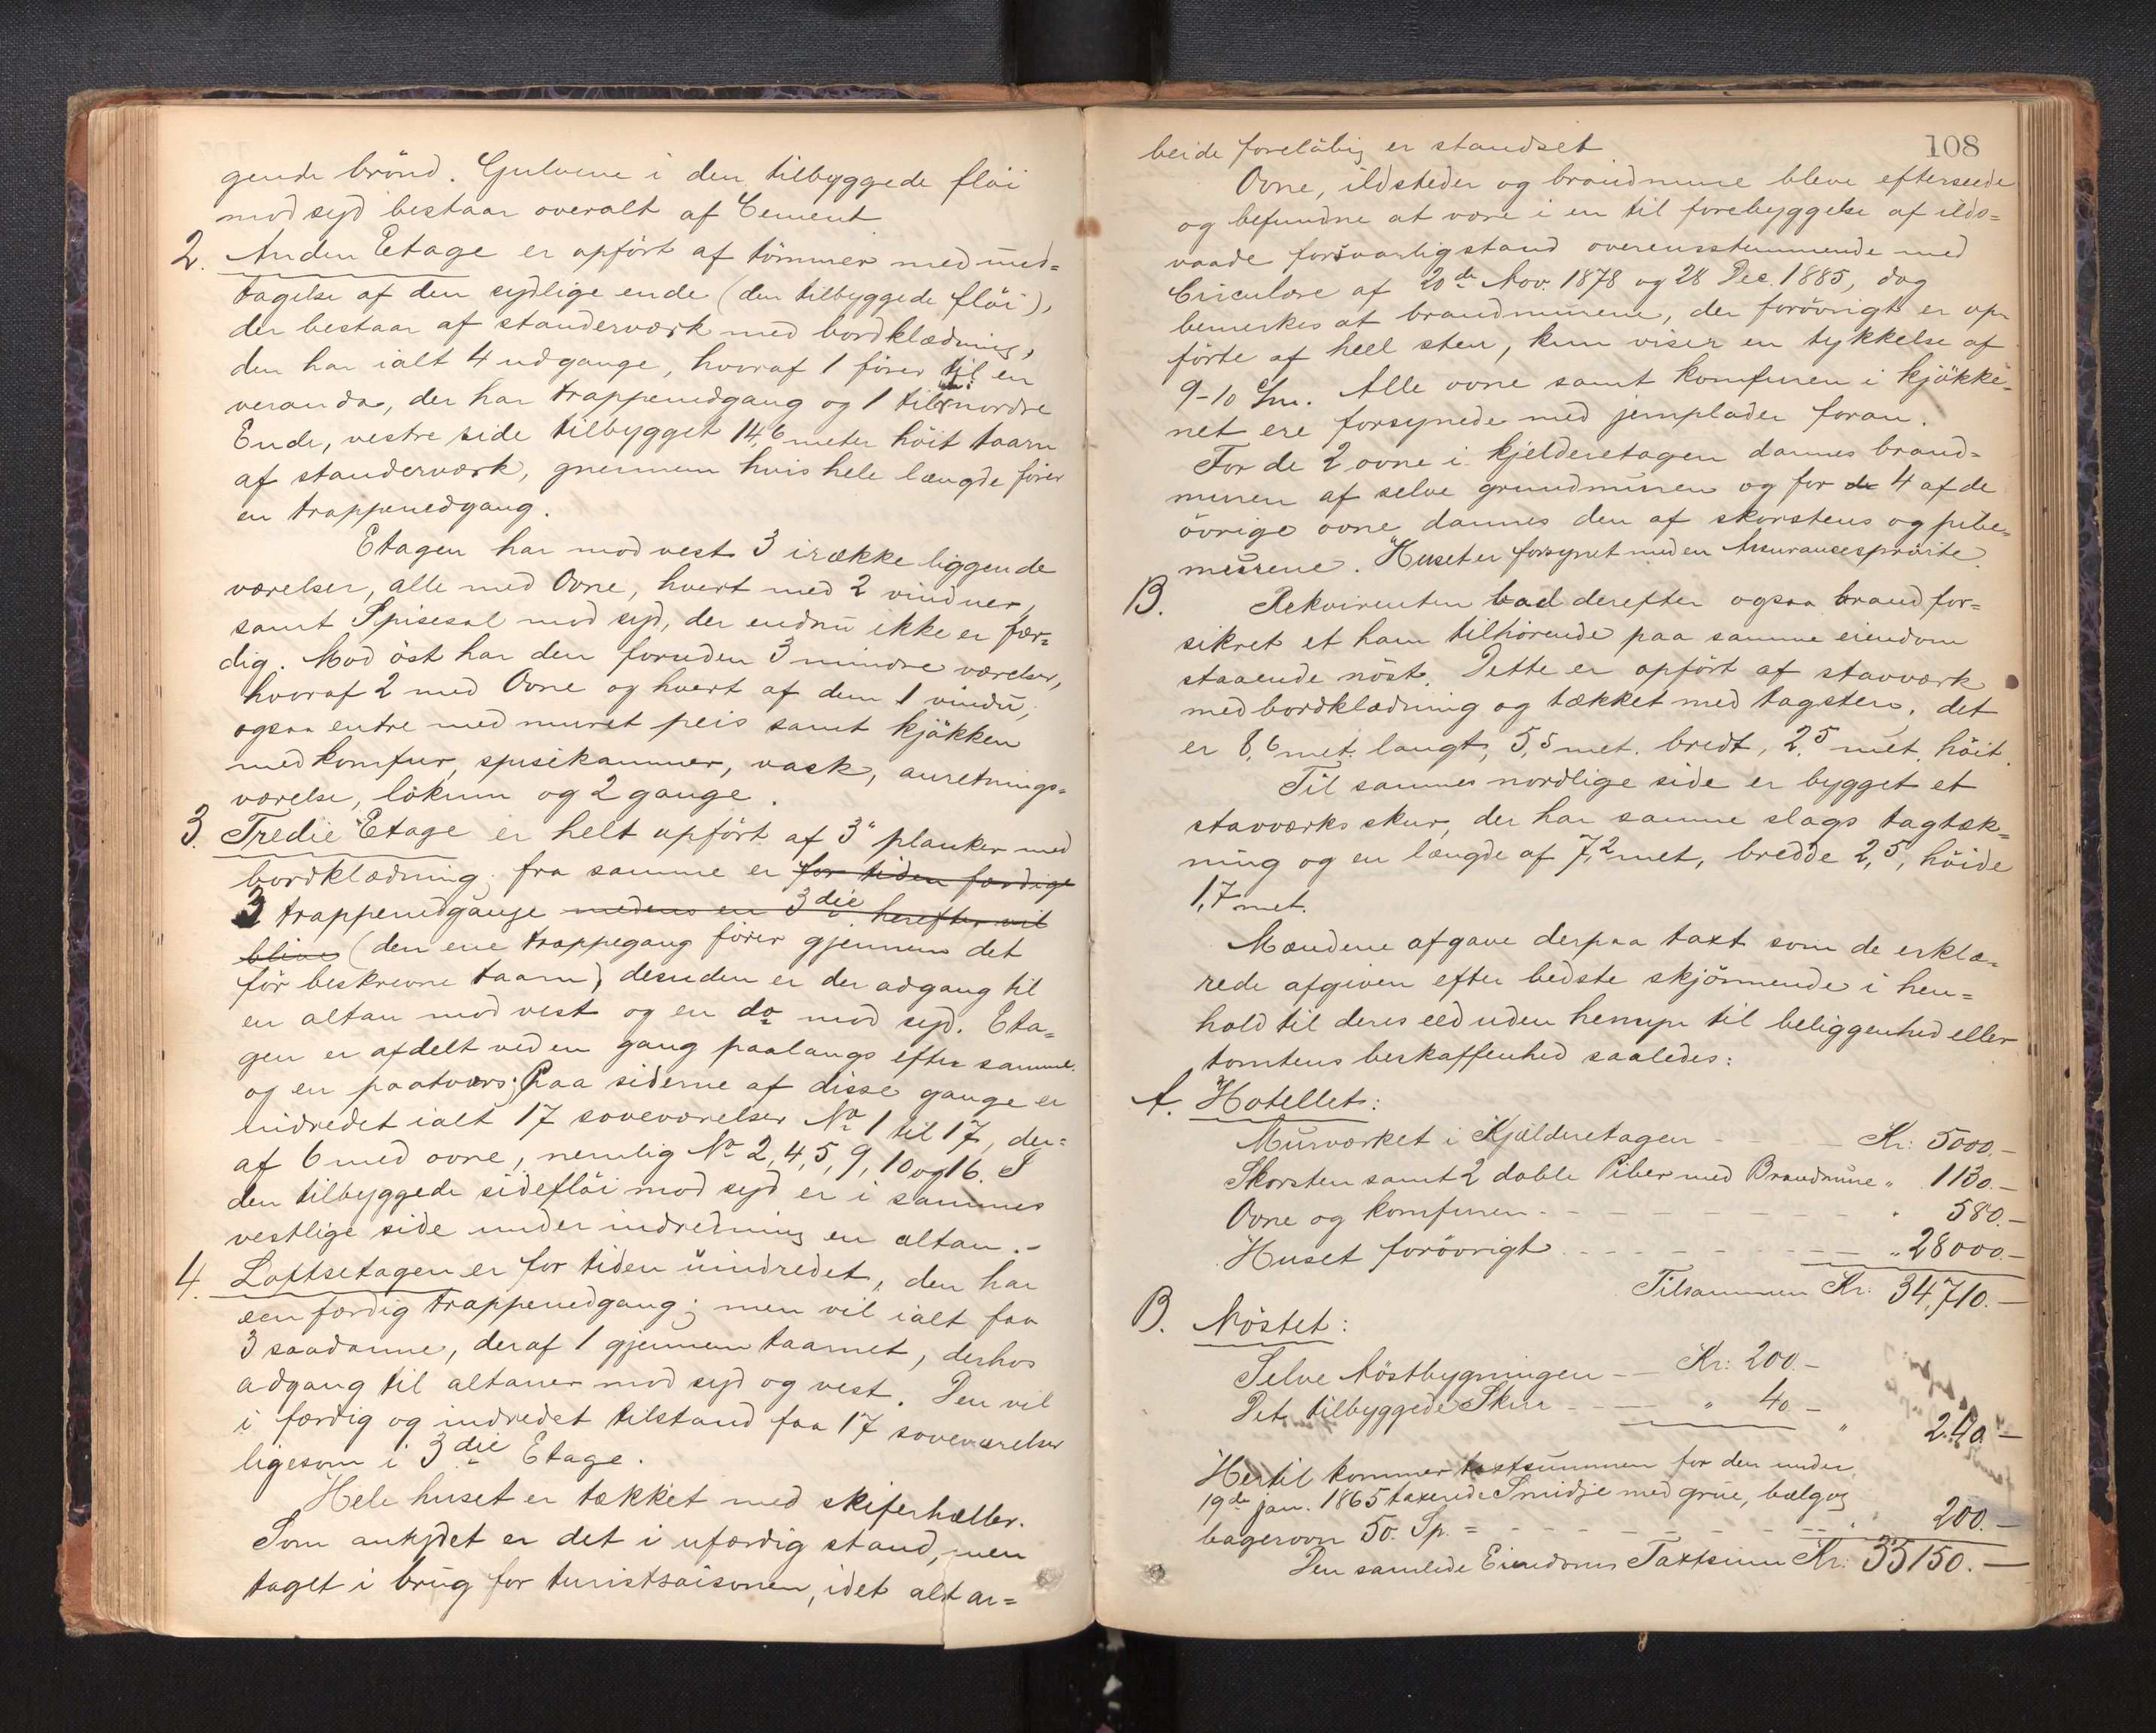 gende brönd. Gulvene i den tilbyggede flöi
mod syd bestaar overalt af Cement
2. Anden Etage er opfört af tömmer med und=
tagelse af den sydlige ende (den tilbyggede flöi),
der bestaar af standerværk med bordklædning,
den har ialt 4 udgange, hvoraf 1 förer til en
veranda, der har trappenedgang og 1 til nordre
Ende, vestre side tilbygget 14,6 meter höit taarn
af standerværk, gnennem hvis hele længde förer
en trappenedgang.
Etagen har mod vest 3 irække liggende
værelser, alle med Ovne, hvert med 2 vinduer,
samt Spisesal mod syd, der endnu ikke er fær=
dig. Mod öst har den foruden 3 mindre værelser,
hvoraf 2 med Ovne og hvert af dem 1 vindu,
ogsaa entre med muret peis samt kjökken
med komfur, spisekammer, vask, anretnings=
værelse, lokum og 2 gange.
3. Tredie Etage er helt opfört af 3" planker med
bordklædning; fra samme er for tiden færdige
3 trappenedgange medens en 3die herefter vil
blive (den ene trappegang förer gjennem det
för beskrevne taarn), desuden er der adgang til
en altan mod vest og en do mod syd. Eta=
gen er afdelt ved en gang paalangs efter samme
og en paatvers; Paa siderne af disse gange er
indredet ialt 17 soveværelser No 1 til 17, der=
af 6 med ovne, nemlig No 2, 4, 5, 9, 10 og 16. I
den tilbyggede sideflöi mod syd er i sammes
vestlige side under indredning en altan.-
4. Loftsetagen er for tiden uindredet, den har
een færdig trappenedgang; men vil ialt faa
3 saadanne, deraf 1 gjennem taarnet, derhos
adgang til altaner mod syd og vest. Den vil
i færdig og indredet tilstand faa 17 soveværelser
ligesom i 3die Etage.
Hele huset er tækket med skiferheller.
Som antydet er det i ufærdig stand, men
taget i brug for turistsaisonen, idet alt ar=
108
beide foreløbig er standset
Ovne, ildsteder og brandmure bleve efterseede
og befundne at være i en til forebyggelse af ilds=
vaade forsvarlig stand overensstemmende med
Circulære af 20de Nov. 1878 og 28 Dec. 1885, dog
bemerkes at brandmurene, der forövrigt er op=
förte af heel sten, kun viser en tykkelse af
9-10 Cm. Alle ovne samt komfuren i kjökke=
net ere forsynede med jernplader foran.
For de 2 ovne i kjelderetagen dannes brand=
muren af selve grundmuren og for de 4 af de
övrige ovne dannes den af skorstens og pibe=
murene. Huset er forsynet med en Assurancesprøite.
B. Rekvirenten bad derefter ogsaa brandfor=
sikret et ham tilhörende paa samme eiendom
staaende nöst. Dette er opfört af stavværk
med bordklædning og tækket med tagsten, det
er 8,6 met. langt, 5,5 met. bredt, 2,5 met. höit.
Til sammes nordlige side er bygget et
stavværks skur, der har samme slags tagtæk=
ning og en længde af 7,2 met, bredde 2,5, höide
1,7 met.
Mændene afgave derpaa taxt som de erklæ=
rede afgiven efter bedste skjönnende i hen=
hold til deres eed uden hensyn til beliggenhed eller
tomtens beskaffenhed saaledes:
A. Hotellet:
Murværket i Kjælderetagen - - - - Kr: 5000.-
Skorsten samt 2 doble Piber med Brandmure " 1130.-
Ovne og komfuren - - - - - - - - - " 580.-
Huset forövrigt - - - - - - - - " 28000.-
Tilsammen Kr. 34,710.-
B. Nöstet:
Selve Nöstbygningen - - Kr: 200.-
Det tilbyggede Skur - - - " 40.-
" 240.-
Hertil kommer taxtsummen for den under
19de Jan. 1865 taxerede Smidje med grue, bælg og
bagerovn 50. Sp. = - - - - - - - - " 200.-
Den samlede Eiendoms Taxtsum Kr: 35150.-